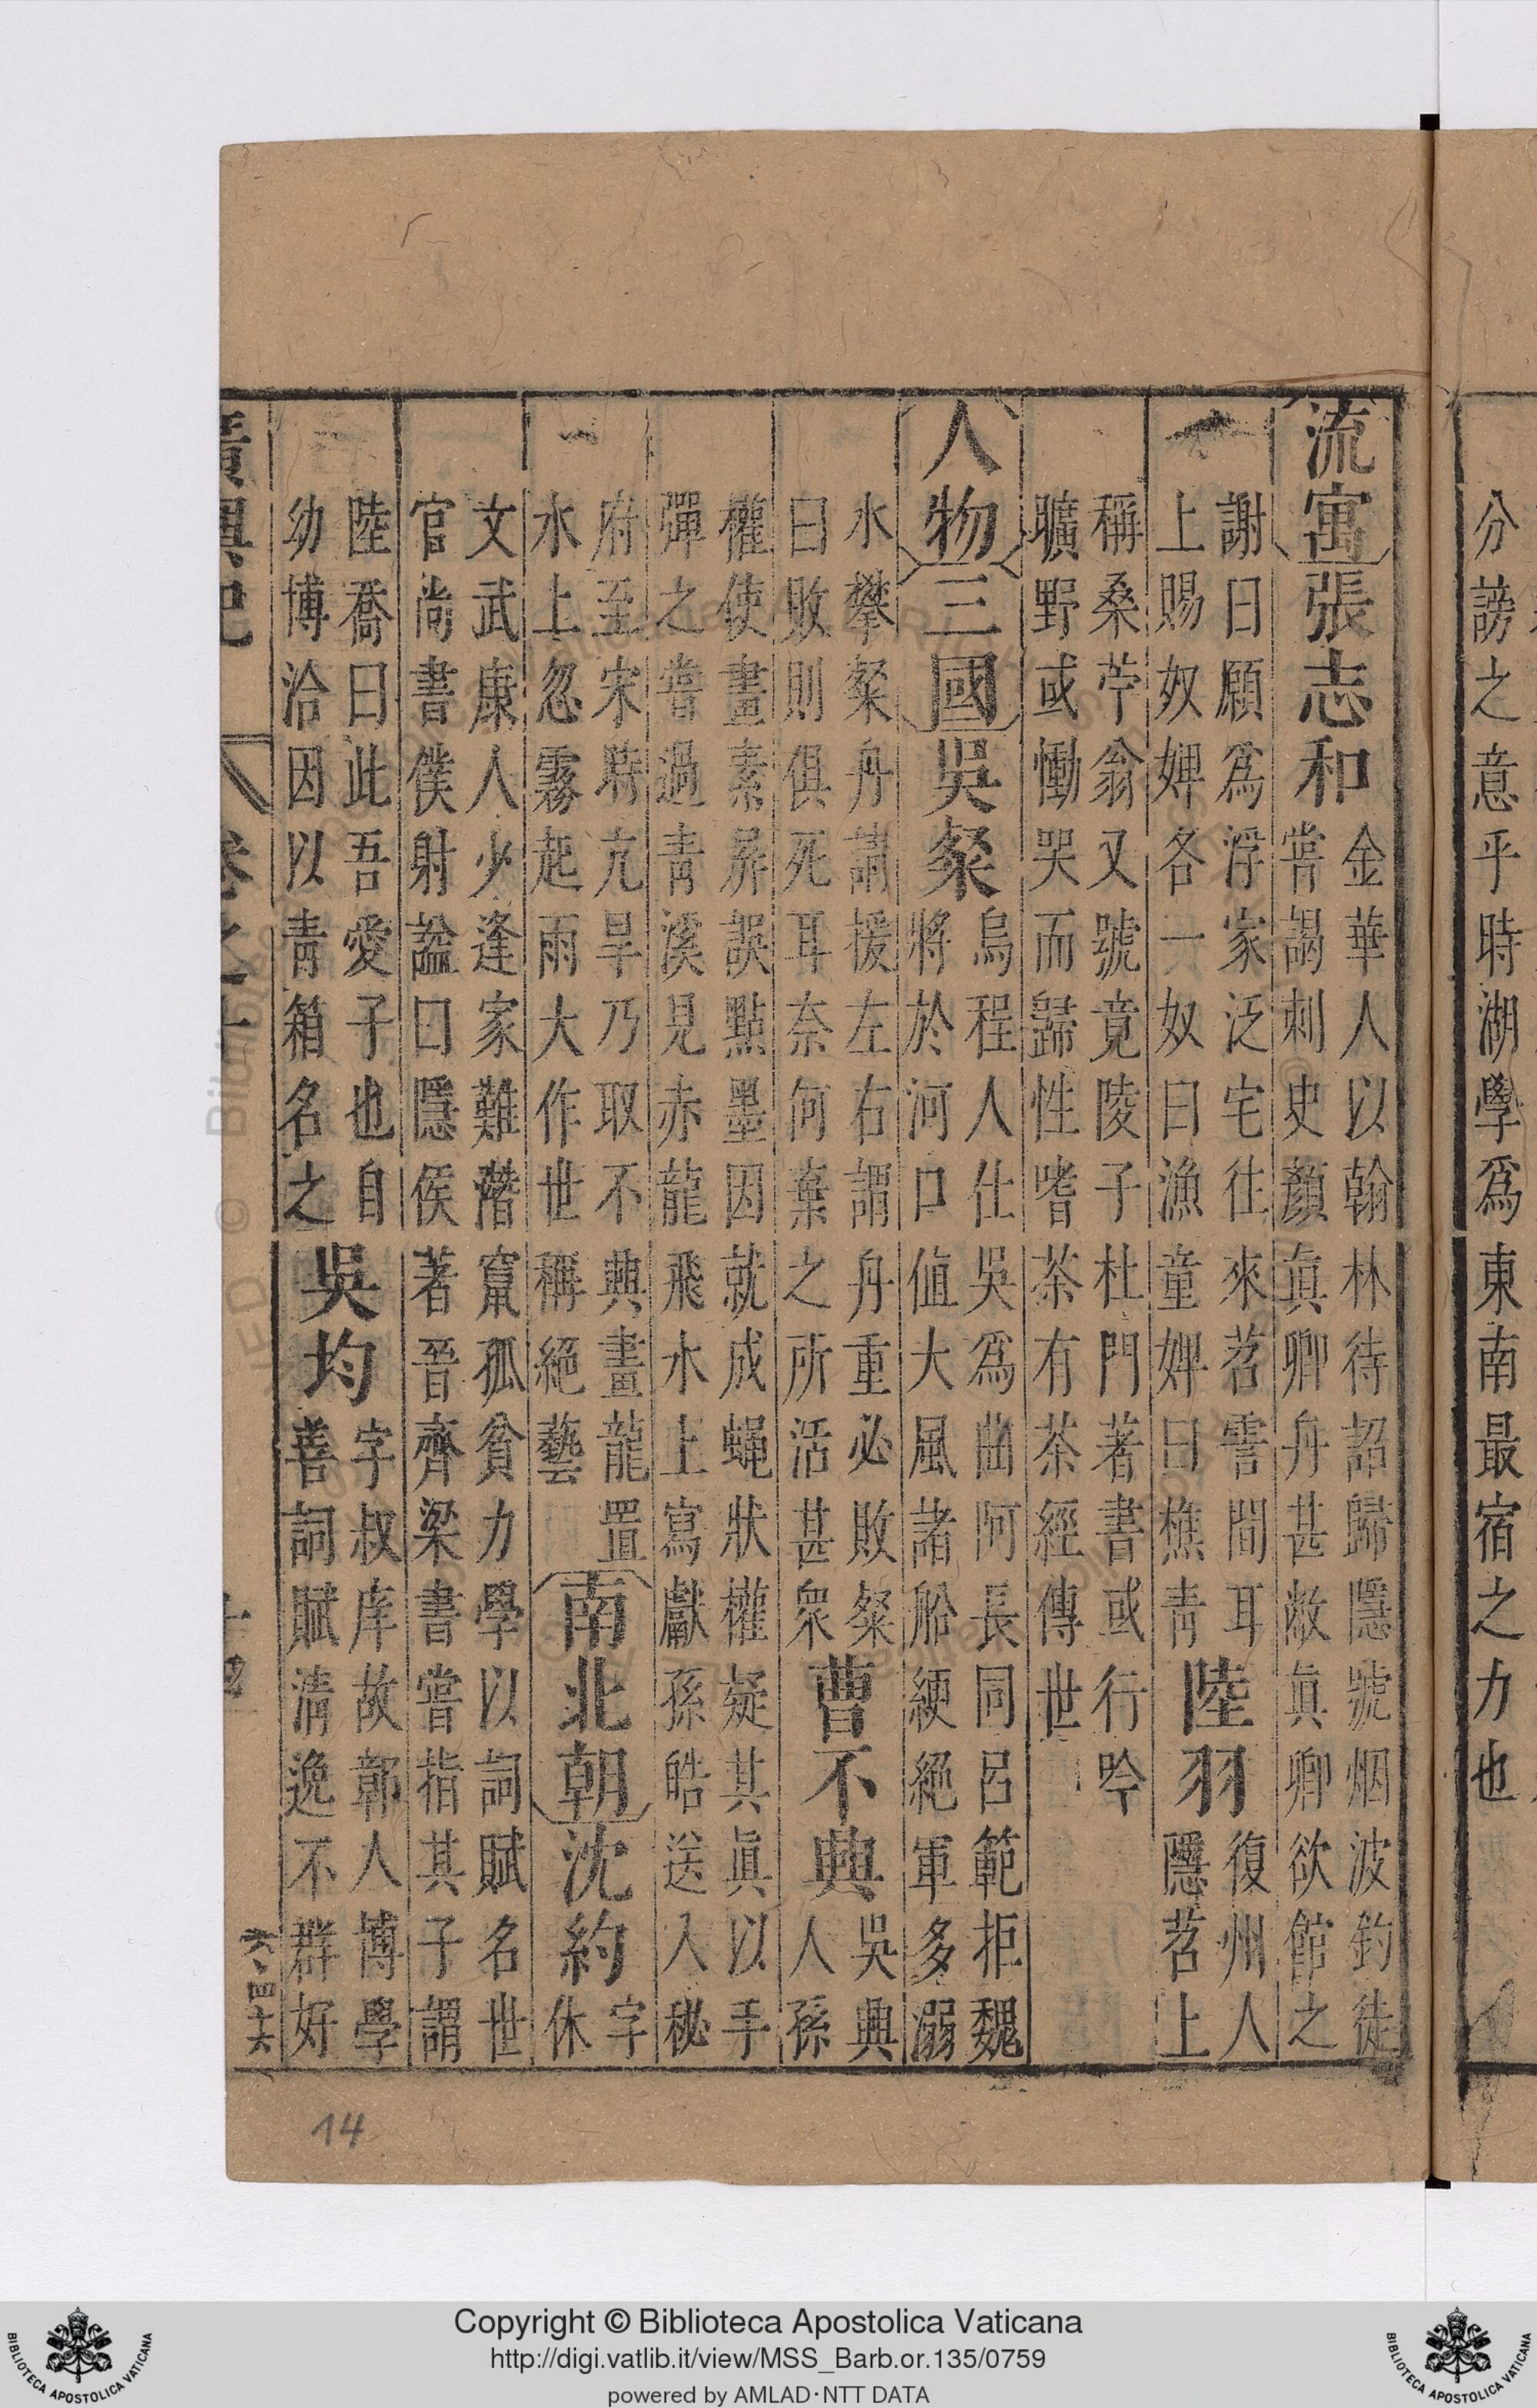 分謗之意乎時湖學爲東南最宿之力也
流寓張志和
金華人以翰林待詔歸隱號烟波釣徒
嘗謁刺史顏眞卿舟甚敝眞卿欲館之
謝曰願爲浮家泛宅往來苕霅間耳
上賜奴婢各一奴曰漁童婢曰樵青
陸羽
復州人
隱苕上
稱桑苧翁又號竟陵子杜門著書或行吟
曠野或慟哭而歸性嗜茶有茶經傳世
人物三國吳粲
烏程人仕吳爲曲阿長同呂範拒魏
將於河口值大風諸船綆絕軍多溺
水攀粲舟請援左右謂舟重必敗粲
曰敗則俱死耳奈何棄之所活甚衆
曹不興
吳興
人孫
權使畫素屏誤點墨因就成蠅狀權疑其眞以手
彈之嘗過青溪見赤龍飛水上寫獻孫皓送入秘
府至宋時亢旱乃取不興畫龍置
水上忽霧起雨大作世稱絕藝
南北朝沈約
字
休
文武康人少逢家難潛竄孤貧力學以詞賦名世
官尚書僕射謚曰隱侯著晉齊梁書嘗指其子謂
陸喬曰此吾愛子也自
幼博洽因以青箱名之
吳均
字叔庠故鄣人博學
善詞賦清逸不群好
廣輿記 卷之十
六四六
14
Copyright © Biblioteca Apostolica Vaticana
http://digi.vatlib.it/view/MSS_Barb.or.135/0759
powered by AMLAD·NTT DATA
BIBLIOTECA APOSTOLICA VATICANA
BIBLIOTECA APOSTOLICA VATICANA